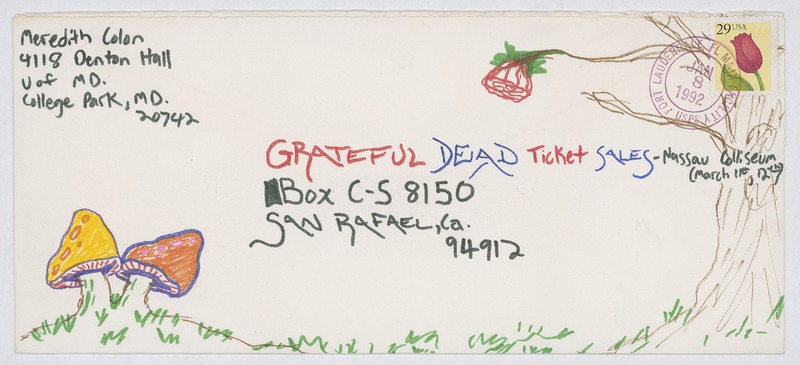 Meredith Colon
4118 Denton Hall
U of MD.
College Park, MD.
20742
29 USA
FORT LAUDERDALE, FL
JAN
8
1992
USPS
GRATEFUL DEAD Ticket SALES - Nassau Colliseum
(March 11th, 12th)
Box C-S 8150
SAN RAFAEL, Ca.
94912